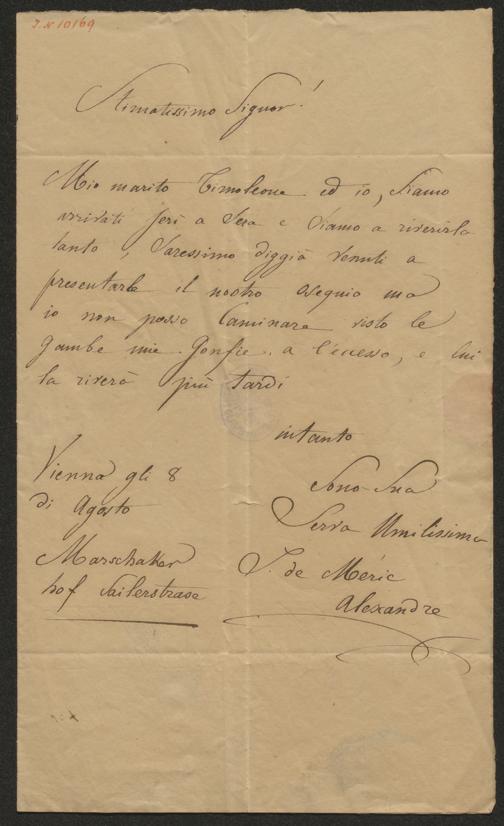 J.N 10169
Stimatissimo Signor!
Mio marito Timoleone ed io, Siamo
arrivati Jeri a Sera e Siamo a riverirla
tanto, Saressimo diggià venuti a
presentarle il nostro ossequio ma
io non posso Caminare visto le
Gambe mie Gonfie a l'ecesso, e lui
la riverà più tardi
intanto
Sono Sua
Serva Umilissima
J. de Méric
Alexandre
Vienna gli 8
di Agosto
Marschaker
hof Sailerstrase